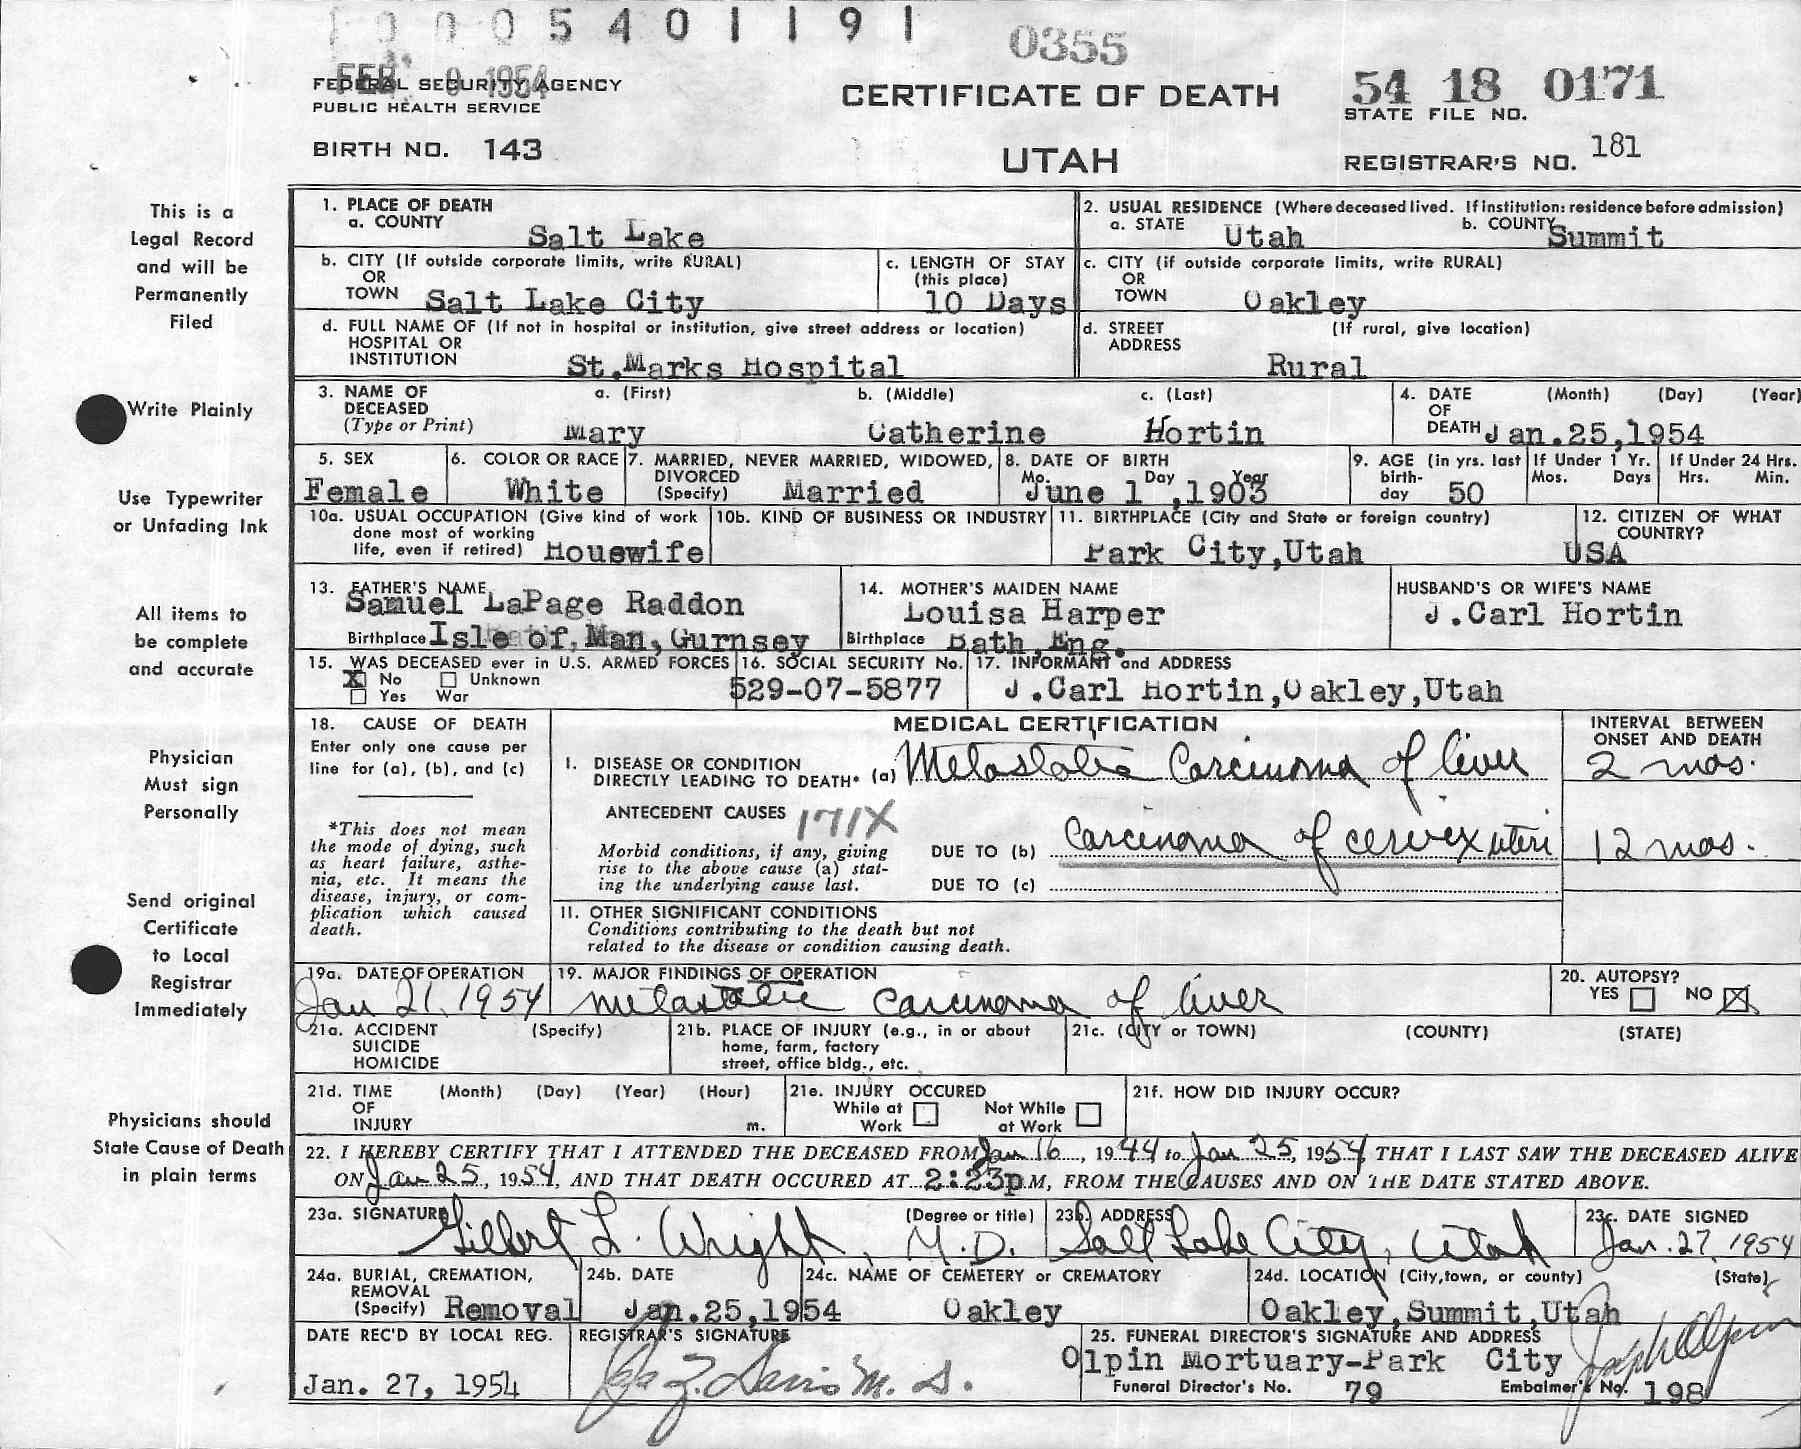 0005401191
0355
FEB 9 1954
FEDERAL SECURITY AGENCY
PUBLIC HEALTH SERVICE
CERTIFICATE OF DEATH
54 18 0171
STATE FILE NO.
BIRTH NO. 143
UTAH
REGISTRAR'S NO. 181
This is a
Legal Record
and will be
Permanently
Filed
Write Plainly
Use Typewriter
or Unfading Ink
All items to
be complete
and accurate
Physician
Must sign
Personally
Send original
Certificate
to Local
Registrar
Immediately
Physicians should
State Cause of Death
in plain terms
1. PLACE OF DEATH
a. COUNTY
Salt Lake
2. USUAL RESIDENCE (Where deceased lived. If institution: residence before admission)
a. STATE Utah b. COUNTY Summit
b. CITY (If outside corporate limits, write RURAL)
OR
TOWN Salt Lake City
c. LENGTH OF STAY
(this place)
10 Days
c. CITY (if outside corporate limits, write RURAL)
OR
TOWN Oakley
d. FULL NAME OF (If not in hospital or institution, give street address or location)
HOSPITAL OR
INSTITUTION St.Marks Hospital
d. STREET (If rural, give location)
ADDRESS
Rural
3. NAME OF a. (First) b. (Middle) c. (Last)
DECEASED
(Type or Print) Mary Catherine Hortin
4. DATE (Month) (Day) (Year)
OF
DEATH Jan.25,1954
5. SEX
Female
6. COLOR OR RACE
White
7. MARRIED, NEVER MARRIED, WIDOWED,
DIVORCED
(Specify) Married
8. DATE OF BIRTH
Mo. Day Year
June 1 ,1903
9. AGE (in yrs. last
birth-
day 50
If Under 1 Yr.
Mos. Days
If Under 24 Hrs.
Hrs. Min.
10a. USUAL OCCUPATION (Give kind of work
done most of working
life, even if retired) Housewife
10b. KIND OF BUSINESS OR INDUSTRY
11. BIRTHPLACE (City and State or foreign country)
Park City,Utah
12. CITIZEN OF WHAT
COUNTRY?
USA
13. FATHER'S NAME
Samuel LaPage Raddon
Birthplace Isle of Man, Gurnsey
14. MOTHER'S MAIDEN NAME
Louisa Harper
Birthplace Bath,Eng.
HUSBAND'S OR WIFE'S NAME
J.Carl Hortin
15. WAS DECEASED ever in U.S. ARMED FORCES
X No Unknown
Yes War
16. SOCIAL SECURITY No.
529-07-5877
17. INFORMANT and ADDRESS
J.Carl Hortin,Oakley,Utah
18. CAUSE OF DEATH
Enter only one cause per
line for (a), (b), and (c)
*This does not mean
the mode of dying, such
as heart failure, asthe-
nia, etc. It means the
disease, injury, or com-
plication which caused
death.
MEDICAL CERTIFICATION
INTERVAL BETWEEN
ONSET AND DEATH
I. DISEASE OR CONDITION
DIRECTLY LEADING TO DEATH* (a) Metastatic Carcinoma of liver 2 mos.
ANTECEDENT CAUSES 171X
Morbid conditions, if any, giving
rise to the above cause (a) stat-
ing the underlying cause last.
DUE TO (b) Carcinoma of cervix uteri 12 mos.
DUE TO (c)
II. OTHER SIGNIFICANT CONDITIONS
Conditions contributing to the death but not
related to the disease or condition causing death.
19a. DATE OF OPERATION
Jan 21, 1954
19. MAJOR FINDINGS OF OPERATION
metastatic carcinoma of liver
20. AUTOPSY?
YES NO X
21a. ACCIDENT (Specify)
SUICIDE
HOMICIDE
21b. PLACE OF INJURY (e.g., in or about
home, farm, factory
street, office bldg., etc.
21c. (CITY or TOWN) (COUNTY) (STATE)
21d. TIME (Month) (Day) (Year) (Hour)
OF
INJURY m.
21e. INJURY OCCURED
While at Work Not While at Work
21f. HOW DID INJURY OCCUR?
22. I HEREBY CERTIFY THAT I ATTENDED THE DECEASED FROM Jan 16, 1944 to Jan 25, 1954 THAT I LAST SAW THE DECEASED ALIVE
ON Jan 25, 1954, AND THAT DEATH OCCURED AT 2:23p.M, FROM THE CAUSES AND ON THE DATE STATED ABOVE.
23a. SIGNATURE (Degree or title)
Gilbert L. Wright, M.D.
23b. ADDRESS
Salt Lake City, Utah
23c. DATE SIGNED
Jan. 27, 1954
24a. BURIAL, CREMATION,
REMOVAL
(Specify) Removal
24b. DATE
Jan.25,1954
24c. NAME OF CEMETERY or CREMATORY
Oakley
24d. LOCATION (City,town, or county) (State)
Oakley,Summit,Utah
DATE REC'D BY LOCAL REG.
Jan. 27, 1954
REGISTRAR'S SIGNATURE
Davis M.D.
25. FUNERAL DIRECTOR'S SIGNATURE AND ADDRESS
Olpin Mortuary-Park City
Funeral Director's No. 79 Embalmer's No. 198